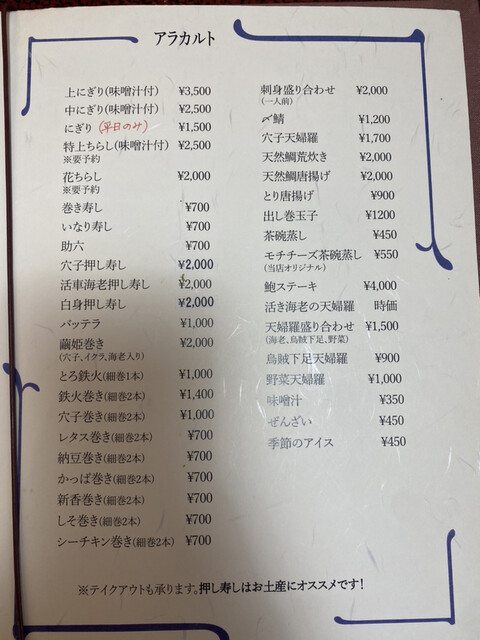 アラカルト
上にぎり(味噌汁付) ¥3,500
中にぎり(味噌汁付) ¥2,500
にぎり (平日のみ) ¥1,500
特上ちらし(味噌汁付) ¥2,500
※要予約
花ちらし ¥2,000
※要予約
巻き寿し ¥700
いなり寿し ¥700
助六 ¥700
穴子押し寿し ¥2,000
活車海老押し寿し ¥2,000
白身押し寿し ¥2,000
バッテラ ¥1,000
繭姫巻き ¥2,000
(穴子、イクラ、海老入り)
とろ鉄火(細巻1本) ¥1,000
鉄火巻き(細巻2本) ¥1,400
穴子巻き(細巻2本) ¥1,000
レタス巻き(細巻2本) ¥700
納豆巻き(細巻2本) ¥700
かっぱ巻き(細巻2本) ¥700
新香巻き(細巻2本) ¥700
しそ巻き(細巻2本) ¥700
シーチキン巻き(細巻2本) ¥700
刺身盛り合わせ ¥2,000
(一人前)
〆鯖 ¥1,200
穴子天婦羅 ¥1,700
天然鯛荒炊き ¥2,000
天然鯛唐揚げ ¥2,000
とり唐揚げ ¥900
出し巻玉子 ¥1200
茶碗蒸し ¥450
モチチーズ茶碗蒸し ¥550
(当店オリジナル)
鮑ステーキ ¥4,000
活き海老の天婦羅 時価
天婦羅盛り合わせ ¥1,500
(海老、烏賊下足、野菜)
烏賊下足天婦羅 ¥900
野菜天婦羅 ¥1,000
味噌汁 ¥350
ぜんざい ¥450
季節のアイス ¥450
※テイクアウトも承ります。押し寿しはお土産にオススメです!